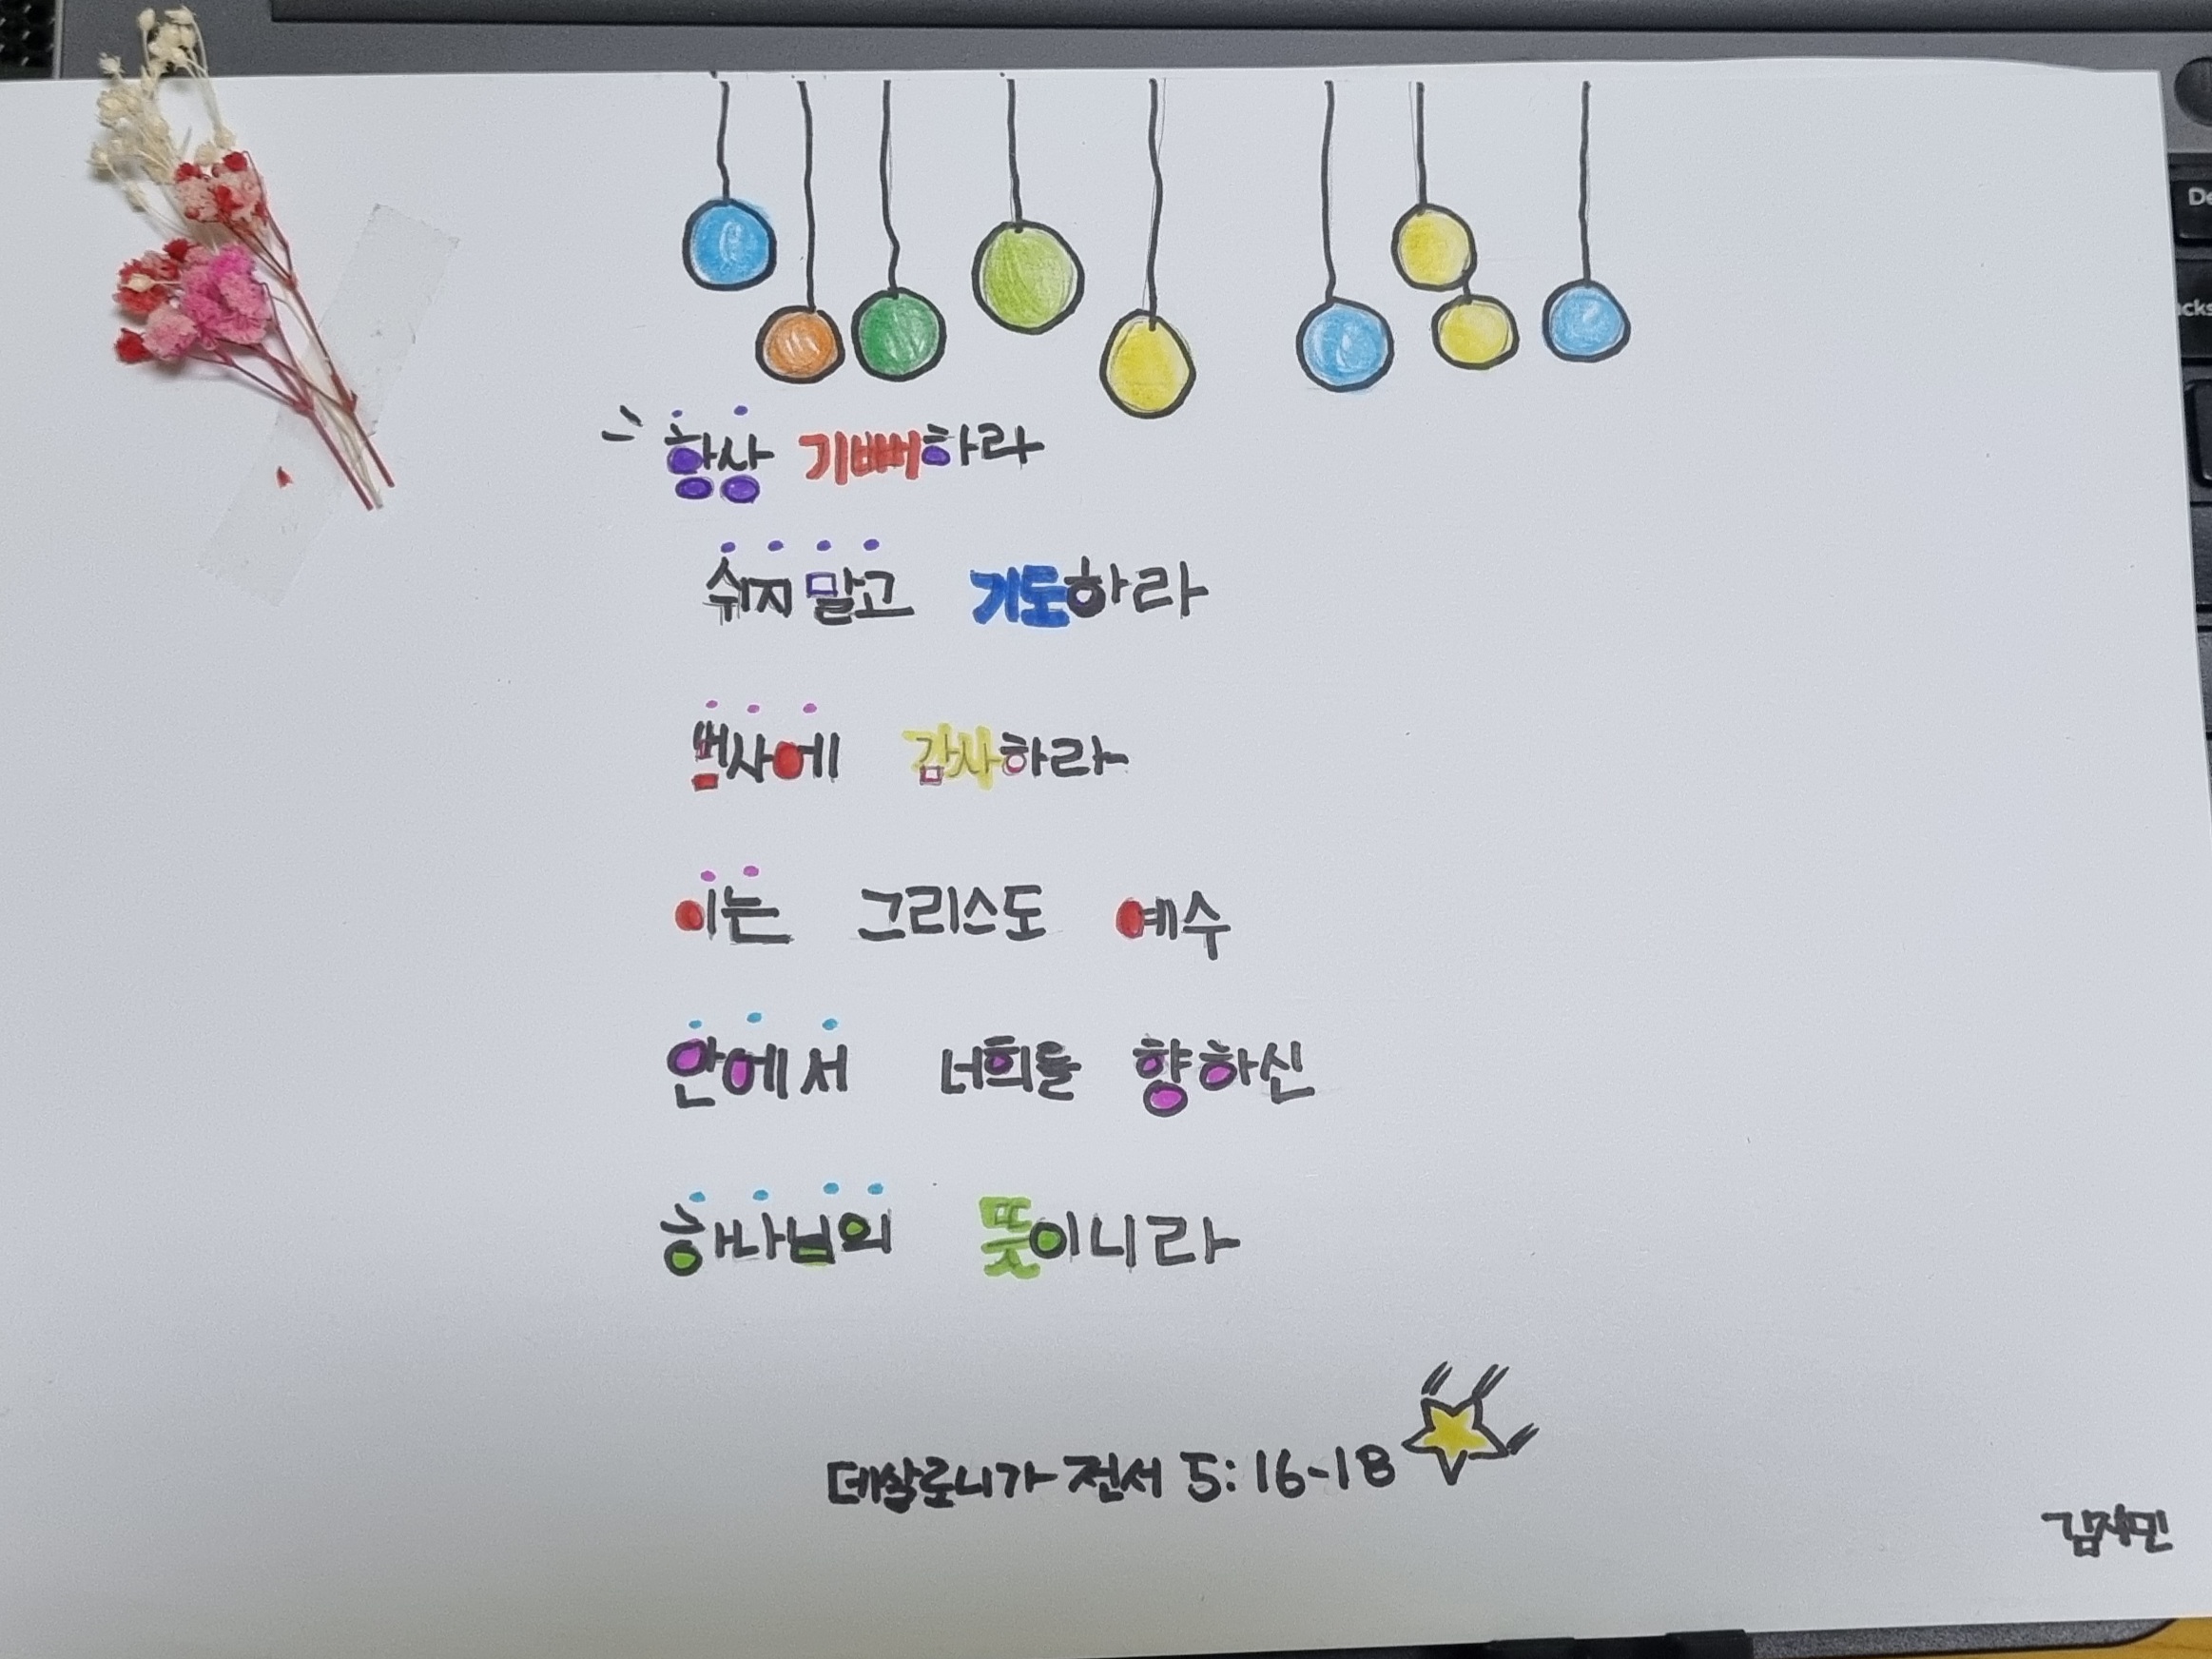 항상 기뻐하라
쉬지 말고 기도하라
범사에 감사하라
이는 그리스도 예수
안에서 너희를 향하신
하나님의 뜻이니라
데살로니가 전서 5:16-18
김재민
De
acks